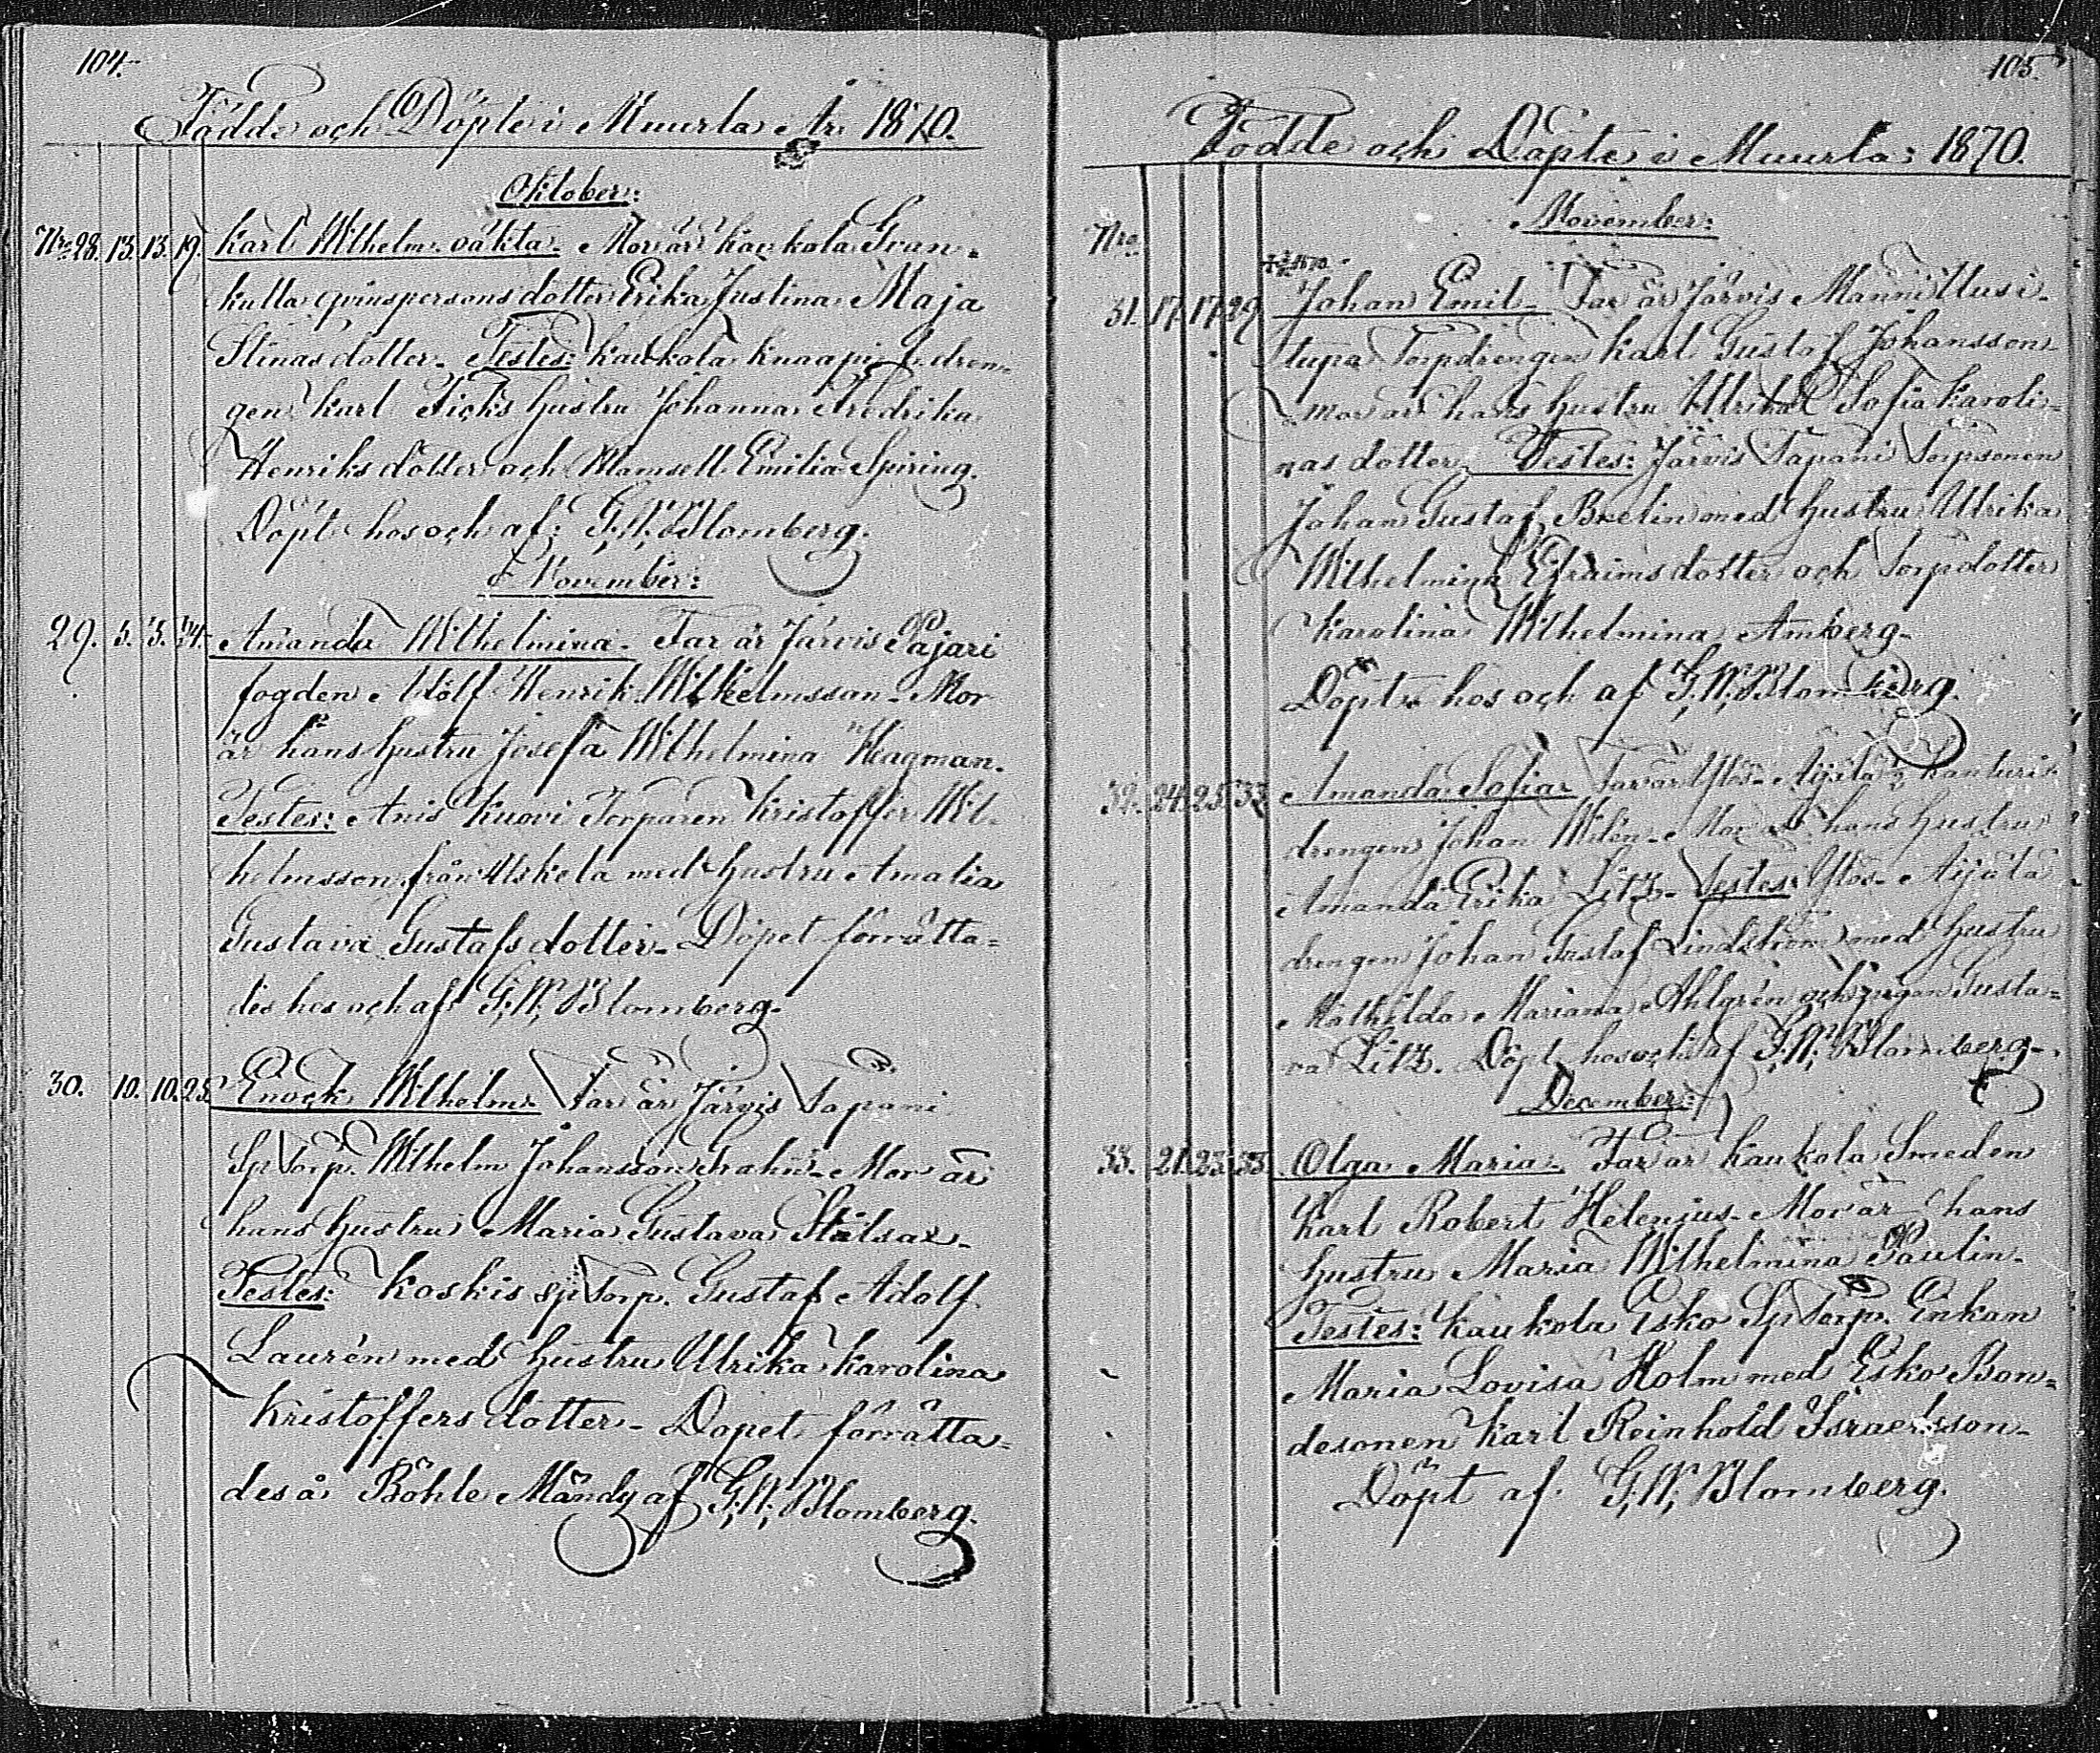 104.
Födde och Döpte i Muurla År 1870.
Oktober:
Nro 28. 13. 13. 19. Karl Wilhelm oäkta. Mor är Kaukola Gran-
kulla qvinspersons dotter Erika Justina Maja
Stinasdotter. Testes: Kaukola Knaapi t. dren-
gen Karl Ficks hustru Johanna Fredrika
Henriksdotter och Mamsell Emilia Spiring.
Döpt hos och af: G. W. Blomberg.
November:
29. 5. 5. 34. Amanda Wilhelmina. Far är Järvis Pajari
fogden Adolf Henrik Wilhelmsson. Mor
är hans hustru Josefa Wilhelmina Hagman.
Testes: Anis Kuovi Torparen Kristoffer Wil-
helmsson från Uskela med hustru Amalia
Gustava Gustafsdotter. Döpet förrätta-
des hos och af G. W. Blomberg.
30. 10. 10. 25. Enock Wilhelm. Far är Järvis Tapani
Sp Torp. Wilhelm Johansson Grahn. Mor är
hans hustru Maria Gustava
Testes: Koskis sp Torp. Gustaf Adolf
Laurén med hustru Ulrika Karolina
Kristoffersdotter. Dopet förrätta-
des å Böhle Mändy af G. W. Blomberg.
105.
Födde och Döpte i Muurla: 1870.
November:
Nro
31. 17. 17. 29. Johan Emil. Far är Järvis Männi Uusi-
tupa Torpdrengen Karl Gustaf Johansson
mor är hans hustru Ulrika Sofia Karoli-
nasdotter. Testes: Järvis Tapani Torpsonen
Johan Gustaf Brelin med hustru Ulrika
Wilhelmina Efraimsdotter och Torpdotter
Karolina Wilhelmina Amberg.
Döpt hos och af G. W. Blomberg.
32. 24. 25. 33. Amanda Sofia. Far är Ylös-Äijälä Kanturi
drengen Johan Wilén. Mor är hans hustru
Amanda Erika Litz. Testes: Ylös-Äijälä
drengen Johan Gustaf Lindström med hustru
Mathilda Mariana Ahlgrén och pigan Gusta-
va Litz. Döpt hos och af G. W. Blomberg.
December:
33. 21. 23. 33. Olga Maria. Far är Kaukola Smeden
Karl Robert Helenius. Mor är hans
hustru Maria Wilhelmina Paulin.
Testes: Kaukola Esko Sp Torp. Enkan
Maria Lovisa Holm med Esko Bon-
desonen Karl Reinhold Israelsson.
Döpt af G. W. Blomberg.